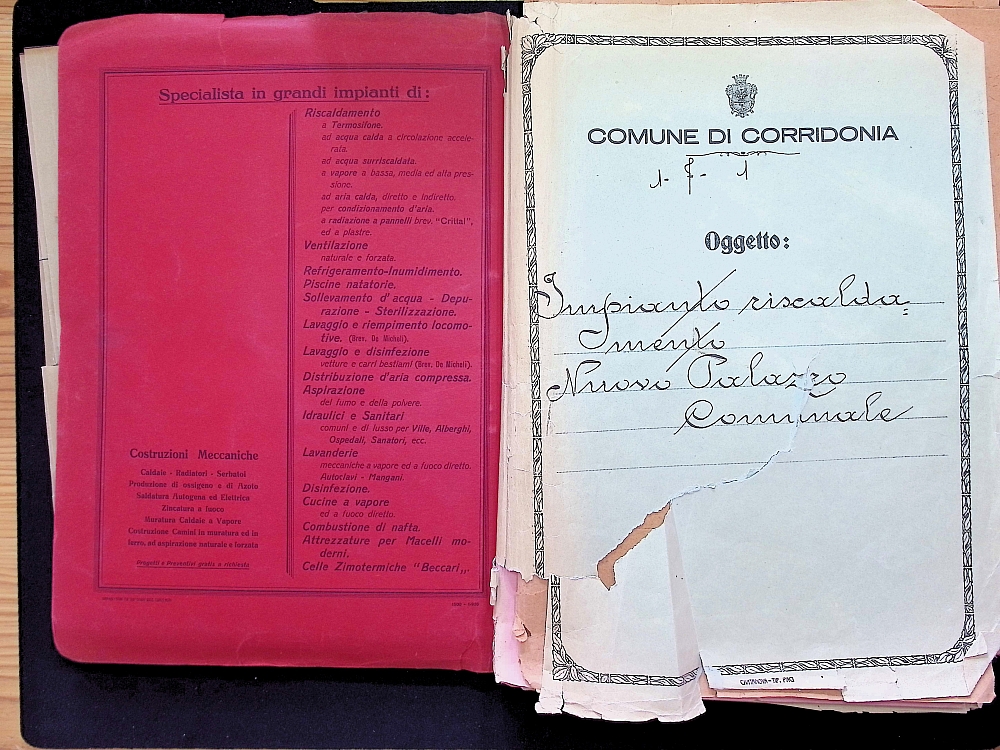 Specialista in grandi impianti di:
Riscaldamento
a Termosifone.
ad acqua calda a circolazione accele-
rata.
ad acqua surriscaldata.
a vapore a bassa, media ed alta pres-
sione.
ad aria calda, diretto e indiretto.
per condizionamento d'aria.
a radiazione a pannelli brev. "Crittal",
ed a piastre.
Ventilazione
naturale e forzata.
Refrigeramento-Inumidimento.
Piscine natatorie.
Sollevamento d'acqua - Depu-
razione - Sterilizzazione.
Lavaggio e riempimento locomo-
tive. (Brev. De Micheli).
Lavaggio e disinfezione
vetture e carri bestiami (Brev. De Micheli).
Distribuzione d'aria compressa.
Aspirazione
del fumo e della polvere.
Idraulici e Sanitari
comuni e di lusso per Ville, Alberghi,
Ospedali, Sanatori, ecc.
Lavanderie
meccaniche a vapore ed a fuoco diretto.
Autoclavi - Mangani.
Disinfezione.
Cucine a vapore
ed a fuoco diretto.
Combustione di nafta.
Attrezzature per Macelli mo-
derni.
Celle Zimotermiche "Beccari„.
Costruzioni Meccaniche
Caldaie - Radiatori - Serbatoi
Produzione di ossigeno e di Azoto
Saldatura Autogena ed Elettrica
Zincatura a fuoco
Muratura Caldaie a Vapore
Costruzione Camini in muratura ed in
ferro, ad aspirazione naturale e forzata
Progetti e Preventivi gratis a richiesta
COMUNE DI CORRIDONIA
1-7-1
Oggetto:
Impianto riscalda=
mento
Nuovo Palazzo
Comunale